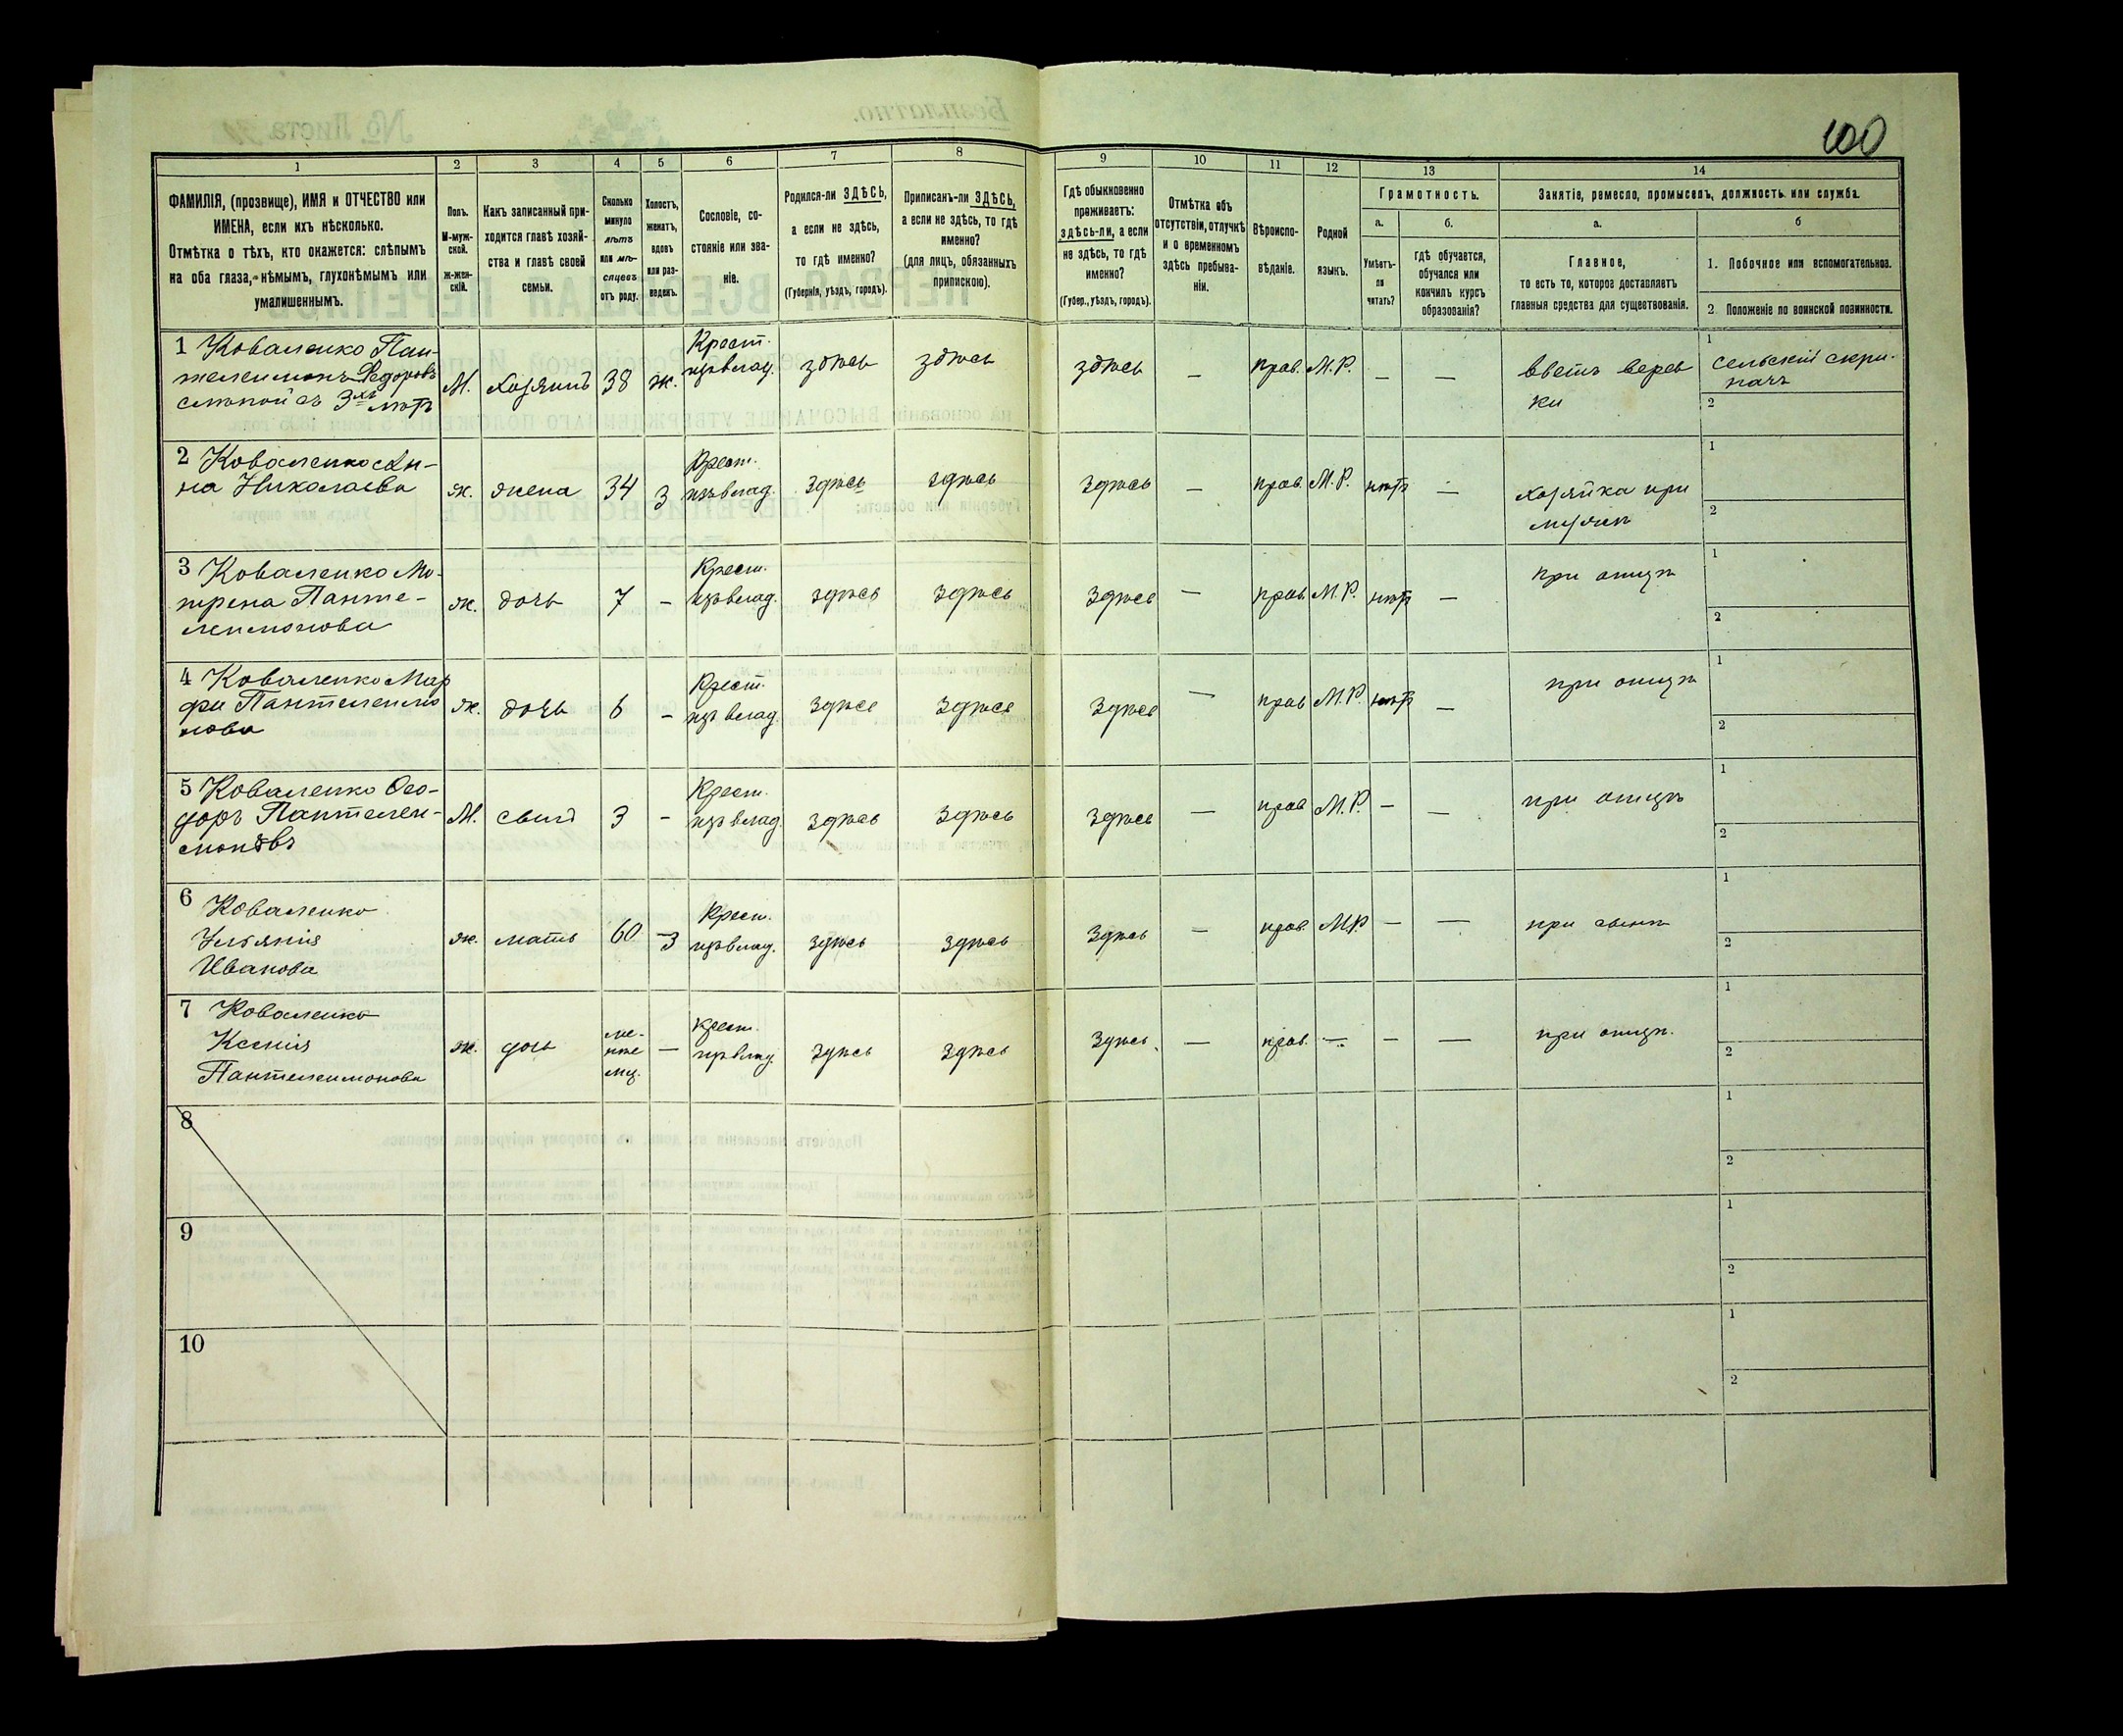 100
1 2 3 4 5 6 7 8 9 10 11 12 13 14
ФАМИЛІЯ, (прозвище), ИМЯ и ОТЧЕСТВО или
ИМЕНА, если ихъ нѣсколько.
Отмѣтка о тѣхъ, кто окажется: слѣпымъ
на оба глаза, нѣмымъ, глухонѣмымъ или
умалишеннымъ.
Полъ.
М-муж-
ской.
ж-жен-
скій.
Какъ записанный при-
ходится главѣ хозяй-
ства и главѣ своей
семьи.
Сколько
минуло
лѣтъ
или мѣ-
сяцевъ
отъ роду.
Холостъ,
женатъ,
вдовъ
или раз-
веденъ.
Сословіе, со-
стояніе или зва-
ніе.
Родился-ли ЗДѢСЬ,
а если не здѣсь,
то гдѣ именно?
(Губернія, уѣздъ, городъ).
Приписанъ-ли ЗДѢСЬ,
а если не здѣсь, то гдѣ
именно?
(для лицъ, обязанныхъ
припискою).
Гдѣ обыкновенно
проживаетъ:
здѣсь-ли, а если
не здѣсь, то гдѣ
именно?
(Губер., уѣздъ, городъ).
Отмѣтка объ
отсутствіи, отлучкѣ
и о временномъ
здѣсь пребыва-
ніи.
Вѣроиспо-
вѣданіе.
Родной
языкъ.
Грамотность.
а.
Умѣетъ-
ли
читать?
б.
гдѣ обучается,
обучался или
кончилъ курсъ
образованія?
Занятіе, ремесло, промыселъ, должность или служба.
а.
Главное,
то есть то, которое доставляетъ
главныя средства для существованія.
б
1. Побочное или вспомогательное.
2. Положеніе по воинской повинности.
1 Коваленко Пан-
телеимонъ Федоровъ
слѣпой съ 3хъ лѣтъ
М. Хозяинъ 38 ж.
Крест.
изъ влад.
здѣсь здѣсь здѣсь — прав. М.Р. — —
вьетъ верев
ки
сельскій скри-
пачъ
1
2
2 Коваленко Ан-
на Николаева
ж. жена 34 З
Крест.
изъ влад.
здѣсь здѣсь здѣсь — прав. М.Р. нѣтъ —
хозяйка при
мужѣ
1
2
3 Коваленко Мо-
трена Панте-
леимонова
ж. дочь 7 —
Крест.
изъ влад.
здѣсь здѣсь здѣсь — прав. М.Р. нѣтъ —
при отцѣ
1
2
4 Коваленко Мар
фа Пантелеимо
нова
ж. дочь 6 —
Крест.
изъ влад.
здѣсь здѣсь здѣсь — прав М.Р. нѣтъ —
при отцѣ
1
2
5 Коваленко Фео-
доръ Пантелеи-
моновъ
М. сынъ 3 —
Крест.
изъ влад.
здѣсь здѣсь здѣсь — прав М.Р. — —
при отцѣ
1
2
6 Коваленко
Ульянія
Иванова
ж. мать 60 З
Крест.
изъ влад.
здѣсь здѣсь здѣсь — прав. М.Р — —
при сынѣ
1
2
7 Коваленко
Ксенія
Пантелеимонова
ж. дочь
ме-
нѣе
мц. —
крест.
изъ влад.
здѣсь здѣсь здѣсь. — прав. — — —
при отцѣ.
1
2
8
1
2
9
1
2
10
1
2